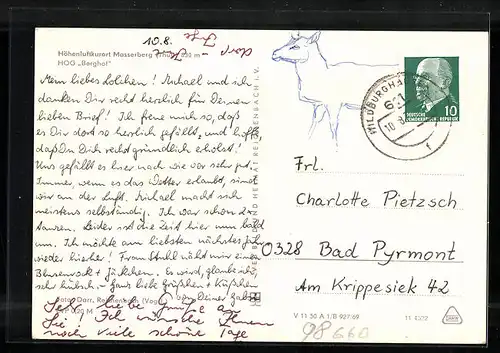 10.8.
Höhenluftkurort Masserberg (Thür.) 850 m
HOG „Berghof"
Mein liebes Lolchen! Michael und ich
danken Dir recht herzlich für Deinen
lieben Brief! Ich freue mich so, daß
es Dir dort so herrlich gefällt, und hoffe,
daß Du Dich recht gründlich erholst!
Uns gefällt es hier nach wie vor sehr gut.
Immer, wenn es das Wetter erlaubt, sind
wir an der Luft. Michael macht sich
meistens selbständig. Ich war schon 2x
Leider ist die Zeit hier nun bald
um. Ich möchte am liebsten nächstes Jahr
wieder hierher! Frau näht mir einen
Blusenrock + Jäckchen. Es wird, glaube ich,
sehr hübsch. Ganz liebe Grüßchen + Küßchen
Deine
Foto: Darr, Reichenbach (Vogtl)
liebe Grüße
Ich wünsche Ihnen
noch viele schöne Tage
BILD UND HEIMAT REICHENBACH I. V.
HILDBURGHAUSEN
10
DEUTSCHE
DEMOKRATISCHE REPUBLIK
f
Frl.
Charlotte Pietzsch
0328 Bad Pyrmont
Am Krippesiek 42
V 11 50 A 1/B 927/69
98660